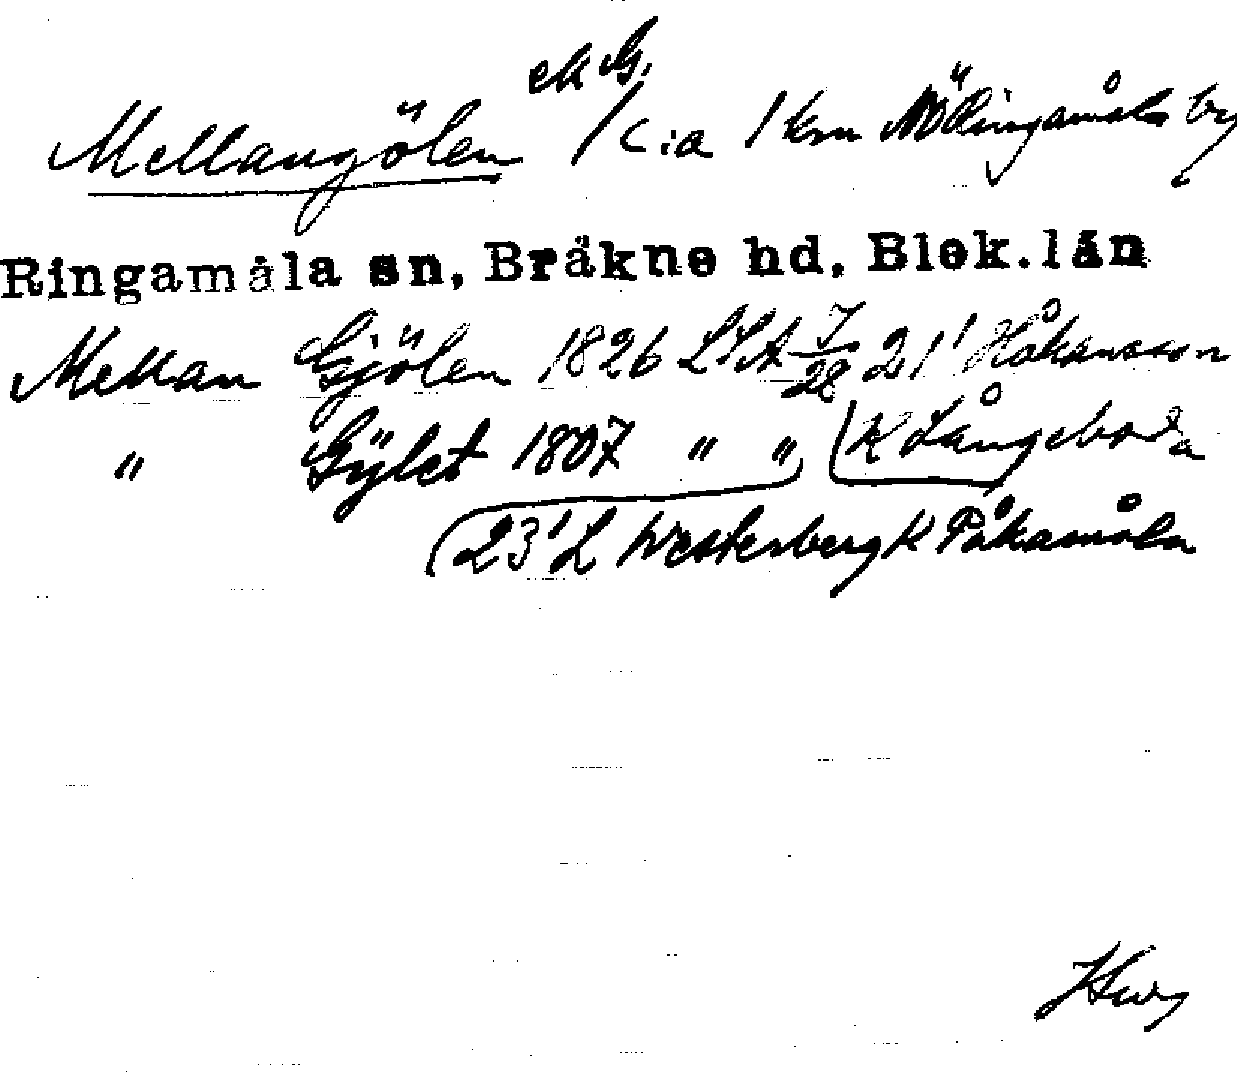 Mellangölen / c:a 1 km NÖ Ringamåla by
Ringamåla sn, Bräkne hd, Blek.län
Mellan Gjölen 1826 LSA 7/28 21' Håkansson
" Gylet 1807 " " (K Långeboda
(23' L Westerberg K Påkamåla